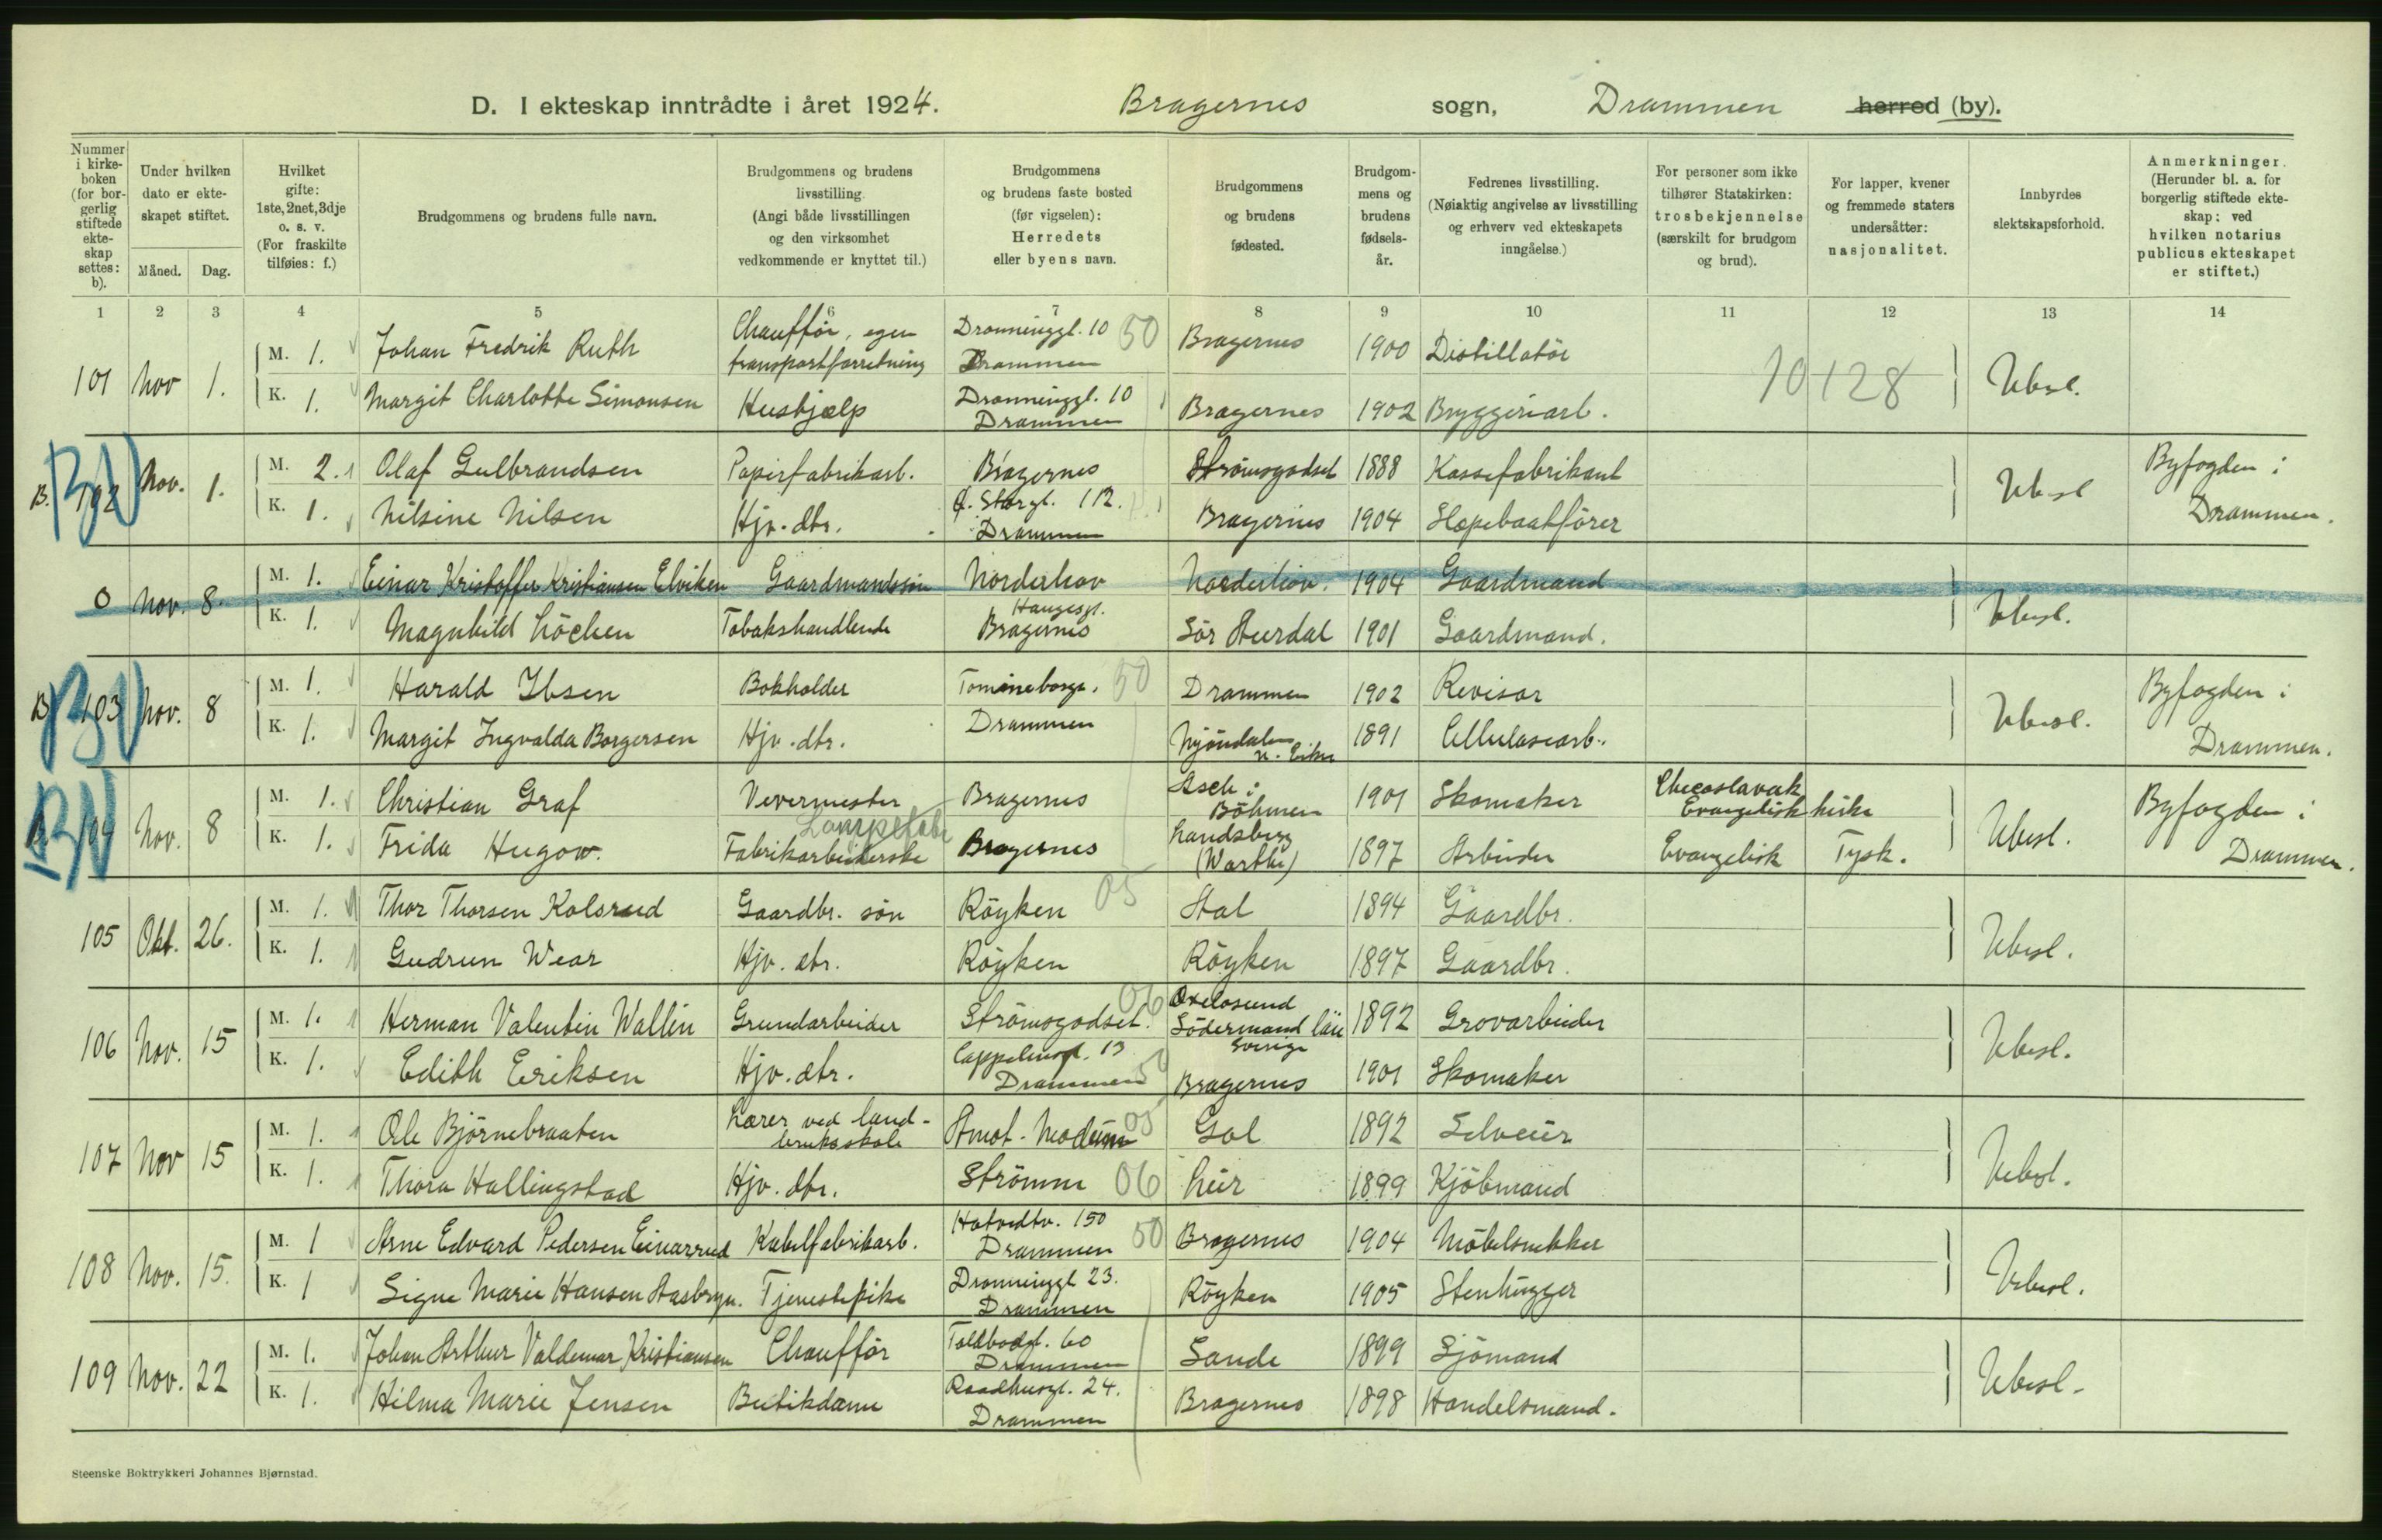 D. I ekteskap inntrådte i året 1924. Bragernes sogn, Drammen herred (by).
Nummer i kirkeboken (for borgerlig stiftede ekteskap settes: b).
Under hvilken dato er ekteskapet stiftet.
Måned. Dag.
Hvilket gifte: 1ste, 2net, 3dje o. s. v. (For fraskilte tilføies: f.)
Brudgommens og brudens fulle navn.
Brudgommens og brudens livsstilling. (Angi både livsstillingen og den virksomhet vedkommende er knyttet til.)
Brudgommens og brudens faste bosted (før vigselen): Herredets eller byens navn.
Brudgommens og brudens fødested.
Brudgommens og brudens fødselsår.
Fedrenes livsstilling. (Nøiaktig angivelse av livsstilling og erhverv ved ekteskapets inngåelse.)
For personer som ikke tilhører Statskirken: trosbekjennelse (særskilt for brudgom og brud).
For lapper, kvener og fremmede staters undersåtter: nasjonalitet.
Innbyrdes slektskapsforhold.
Anmerkninger. (Herunder bl. a. for borgerlig stiftede ekteskap: ved hvilken notarius publicus ekteskapet er stiftet.)
1 2 3 4 5 6 7 8 9 10 11 12 13 14
101 Nov 1. M. 1. Johan Fredrik Ruth Chauffør, egen transportforretning Dronninggt. 10 Drammen 50 Bragernes 1900 Distillatør 10128 Ubesl.
K. 1. Margit Charlotte Simonsen Hushjælp Dronninggt. 10 Drammen Bragernes 1902 Bryggeriarb.
B. 102 BV Nov. 1. M. 2. Olaf Gulbrandsen Papirfabrikarb. Bragernes Strømsgodset 1888 Kassefabrikant Ubesl Byfogden i Drammen.
K. 1. Nilsine Nilsen Hjv. dtr. Ø. Storgt. 112. Drammen Bragernes 1904 Slæpebaatfører
0 Nov. 8. M. 1. Einar Kristoffer Kristiansen Elviken Gaardmandssøn Norderhov Norderhov. 1904 Gaardmand Ubesl.
K. 1. Magnhild Løchen Tobakshandlende Haugesgt. Bragernes Sør Aurdal 1901 Gaardmand.
B 103 BV Nov. 8 M. 1. Harald Ibsen Bokholder Tomineborgv. Drammen 50 Drammen 1902 Revisor Ubesl. Byfogden i Drammen.
K. 1. Margit Ingvalda Borgersen Hjv. dtr. Mjøndalen N. Eiker 1891 Cellulosearb.
104 BV Nov. 8 M. 1. Christian Graf Vevermester Bragernes Asch i Böhmen 1901 Skomaker Checoslavakhiske Evangelisk Ubesl. Byfogden i Drammen.
K. 1. Frida Hugow. Fabrikarbeiderske Lampefabr Bragernes Landsberg (Warthe) 1897 Arbeider Evangelisk Tysk.
105 Okt. 26. M. 1. Thor Thorsen Kolsrud Gaardbr. søn Røyken 05 Aal 1894 Gaardbr. Ubesl.
K. 1. Gudrun Wear Hjv. dtr. Røyken Røyken 1897 Gaardbr.
106 Nov. 15 M. 1. Herman Valentin Wallin Grundarbeider Strømsgodset. 06 Oxelosund Södermand län Sverige 1892 Grovarbeider Ubesl.
K. 1. Edith Eriksen Hjv. dtr. Cappelensgt. 13 Drammen 50 Bragernes 1901 Skomaker
107 Nov 15 M. 1. Ole Bjørnebraaten Lærer ved landbruksskole Åmot - Modum 05 Gol 1892 Selveier Ubesl.
K. 1. Thora Hallingstad Hjv. dtr. Strømm 06 Lier 1899 Kjøbmand
108 Nov. 15. M. 1 Arne Edvard Pedersen Einarsrud Kabelfabrikarb. Hotvedtv. 150 Drammen 50 Bragernes 1904 Møbelsnekker Ubesl.
K. 1 Signe Marie Hansen Aasbryn. Tjenestepike Dronninggt 23. Drammen Røyken 1905 Stenhugger
109 Nov. 22 M. 1. Johan Arthur Valdemar Kristiansen Chauffør Toldbodgt. 60 Drammen Sande 1899 Sjømand Ubesl.
K. 1. Hilma Marie Jensen Butikdame Raadhusgt. 24. Drammen Bragernes 1898 Handelsmand.
Steenske Boktrykkeri Johannes Bjørnstad.